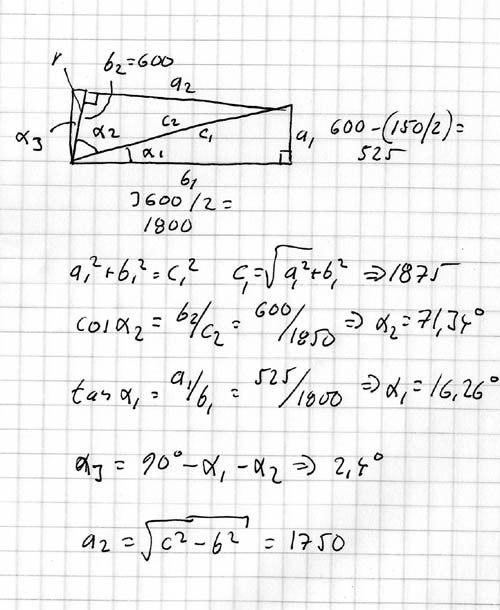 r b₂=600
a₂
α₃ α₂ c₂ c₁ α₁ a₁ 600-(150/2)=
525
b₁
3600/2=
1800
a₁²+b₁²=c₁² c₁=√a₁²+b₁² ⇒1875
cosα₂ = b₂/c₂ = 600/1850 ⇒ α₂=71,34°
tanα₁ = a₁/b₁ = 525/1800 ⇒ α₁=16,26°
α₃ = 90°-α₁-α₂ ⇒ 2,4°
a₂ = √c²-b² = 1750